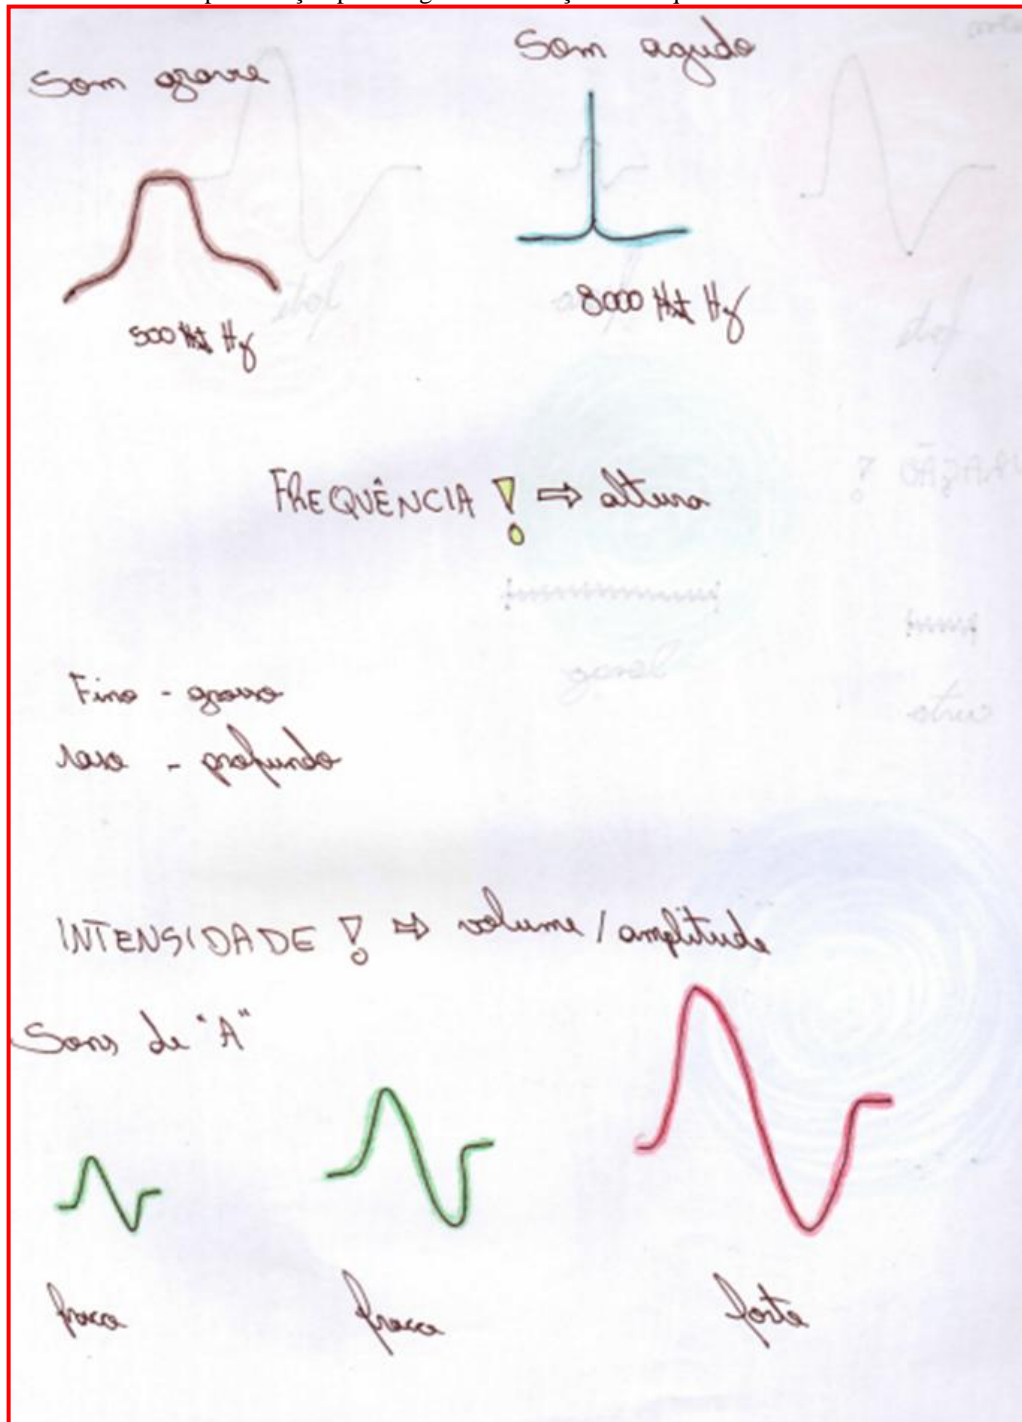 Som grave
Som agudo
500 Hz
8000 Hz
FREQUÊNCIA ! ⇒ altura
Fino - grosso
raso - profundo
INTENSIDADE ! ⇒ volume / amplitude
Sons de "A"
fraca
fraca
forte